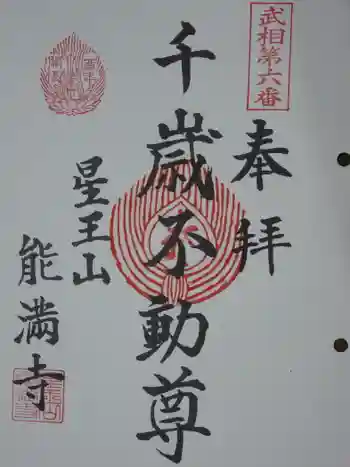 武相第六番
奉拝
千歳不動尊
星王山
能満寺